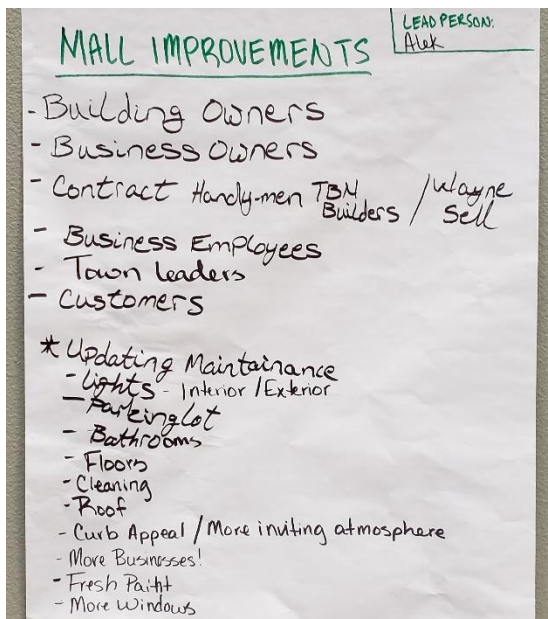 MALL IMPROVEMENTS
LEAD PERSON:
Alek
- Building Owners
- Business Owners
- Contract Handy-men TBN Builders / Wayne Sell
- Business Employees
- Town Leaders
- Customers
* Updating Maintainance
- Lights - Interior / Exterior
- Parking Lot
- Bathrooms
- Floors
- Cleaning
- Roof
- Curb Appeal / More inviting atmosphere
- More Businesses!
- Fresh Paint
- More Windows